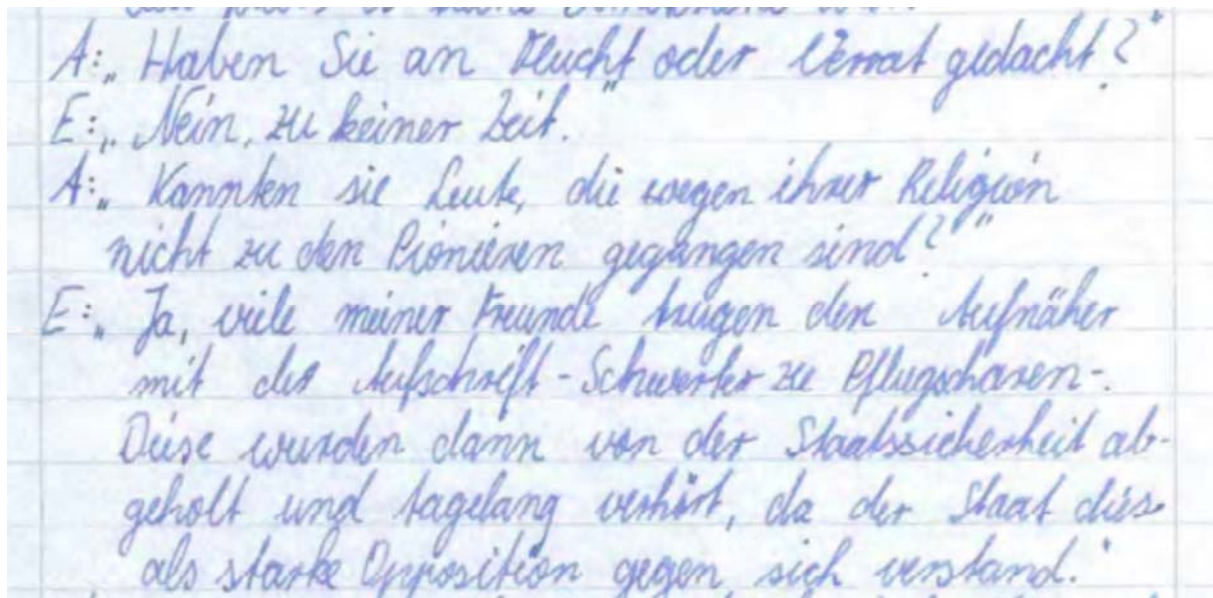 A: „Haben Sie an Flucht oder Verrat gedacht?"
E: „Nein, zu keiner Zeit."
A: „Kannten sie Leute, die wegen ihrer Religion
nicht zu den Pionieren gegangen sind?"
E: „Ja, viele meiner Freunde trugen den Aufnäher
mit der Aufschrift - Schwerter zu Pflugscharen -.
Diese wurden dann von der Staatssicherheit ab-
geholt und tagelang verhört, da der Staat dies
als starke Opposition gegen sich verstand."